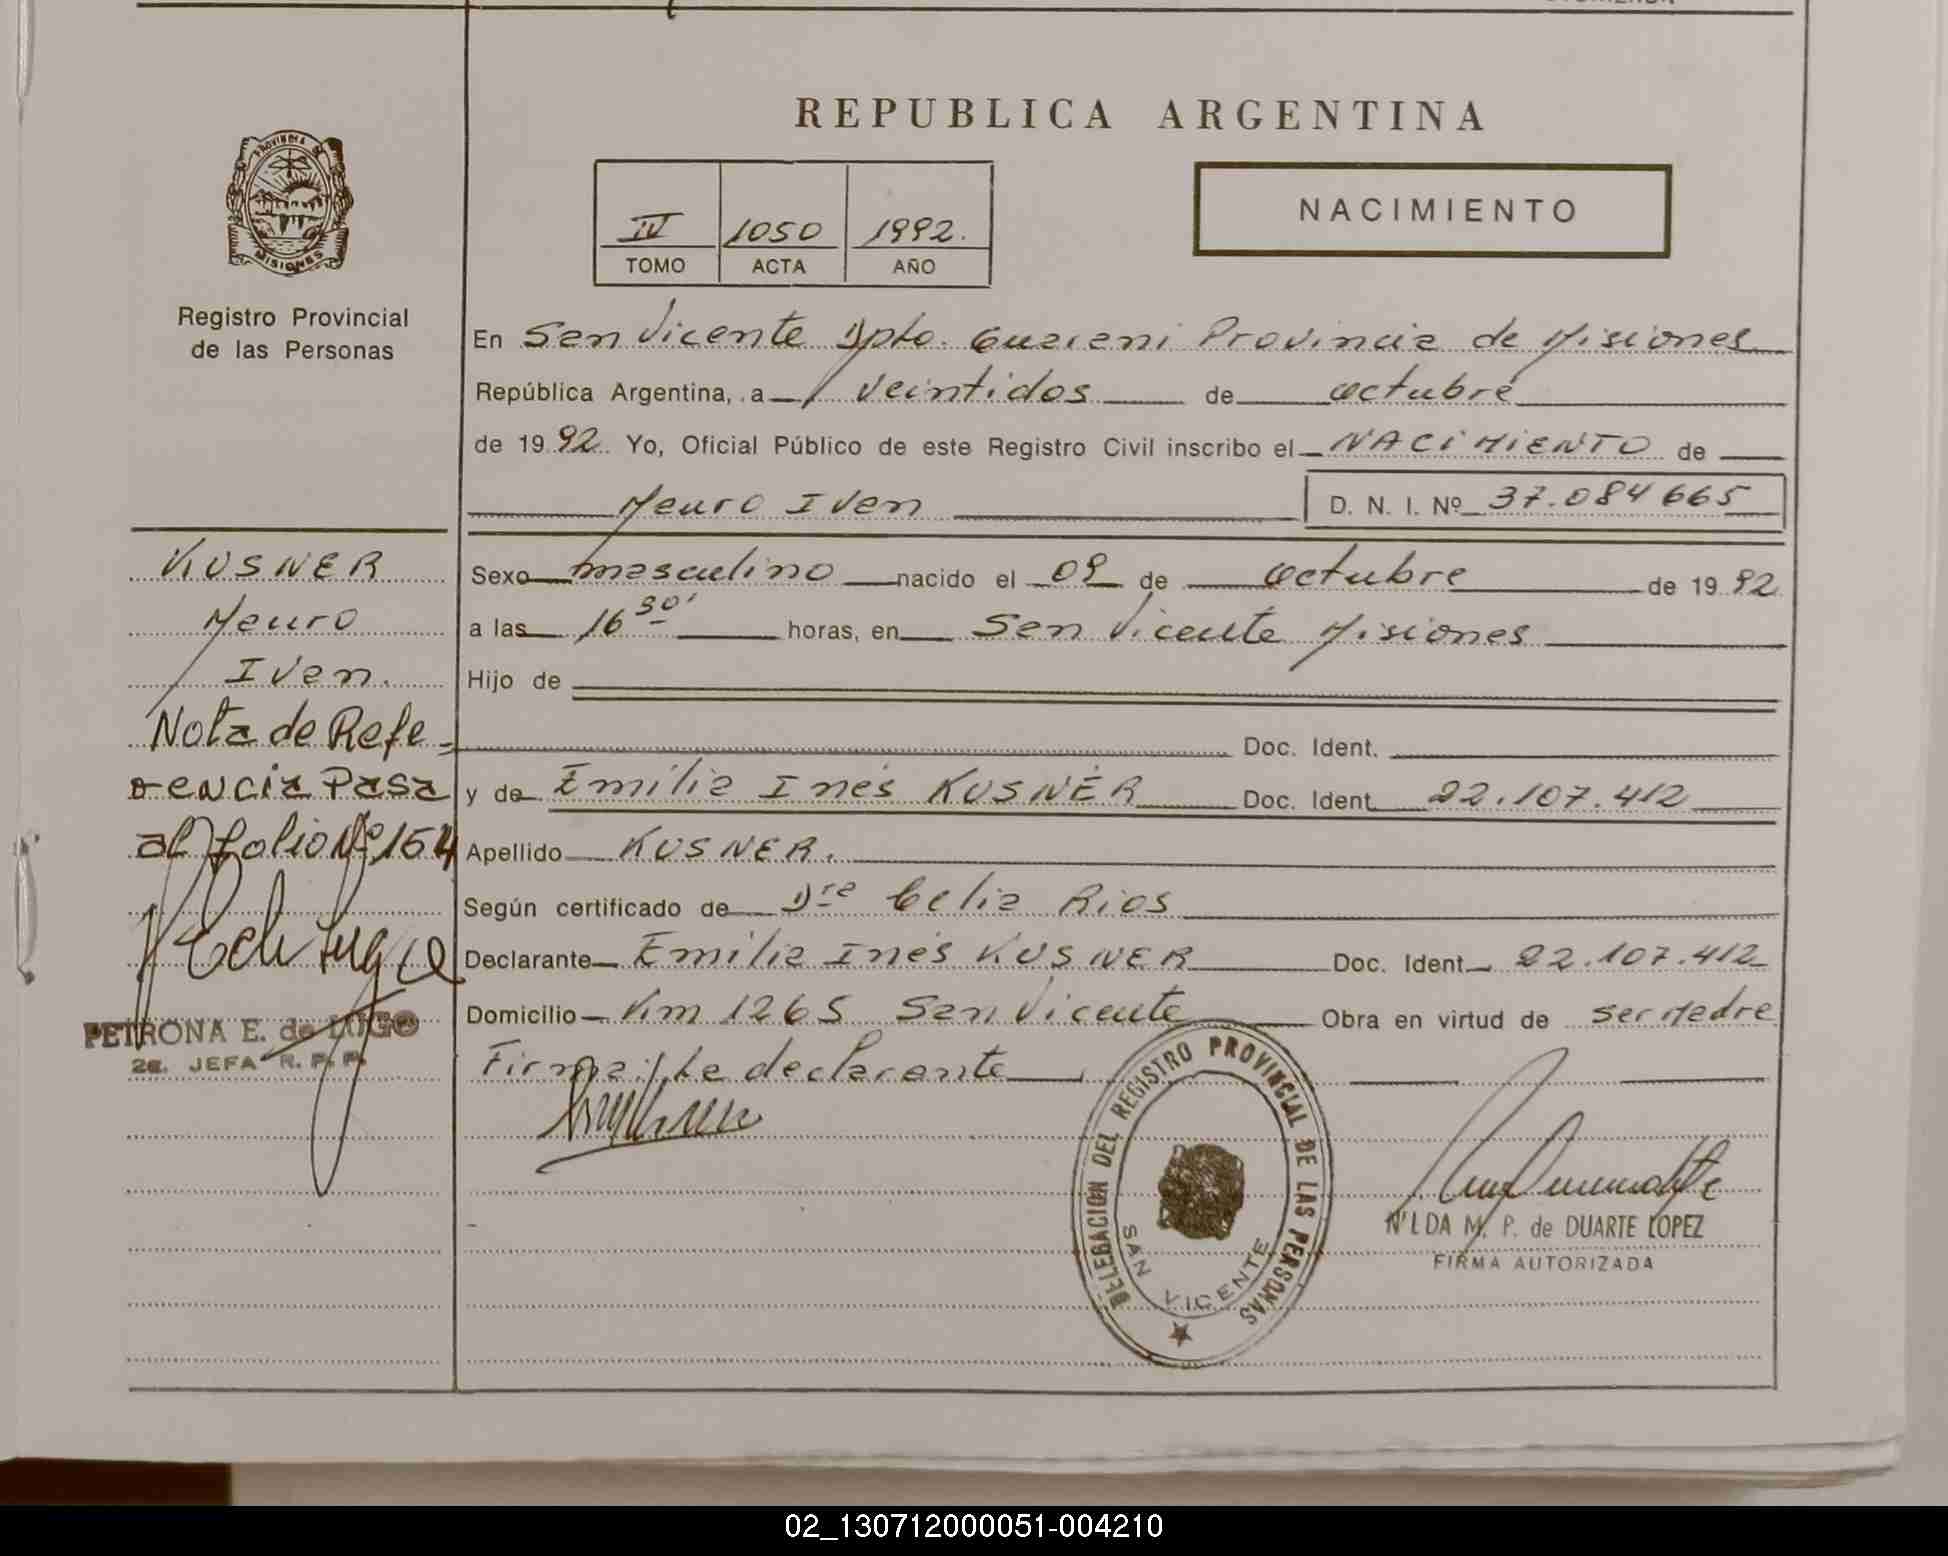 REPUBLICA ARGENTINA
PROVINCIA DE
MISIONES
Registro Provincial
de las Personas
IV 1050 1992.
TOMO ACTA AÑO
NACIMIENTO
En San Vicente Dpto. Guarani Provincia de Misiones
República Argentina, a veintidos de octubre
de 1992 Yo, Oficial Público de este Registro Civil inscribo el NACIMIENTO de
Mauro Ivan D. N. I. Nº 37.084665
Sexo masculino nacido el 09 de octubre de 1992
a las 16 30' horas, en San Vicente Misiones
Hijo de
Doc. Ident.
y de Emilia Inés KUSNER Doc. Ident 22.107.412
Apellido KUSNER.
Según certificado de Dra Celia Rios
Declarante Emilia Inés KUSNER Doc. Ident 22.107.412
Domicilio Km 1265 San Vicente Obra en virtud de ser Madre
Firma: La declarante
KUSNER
Mauro
Ivan.
Nota de Refe=
rencia Pasa
al folio Nº 154
PETRONA E. de LUGO
2a. JEFA R. P. P.
DELEGACIÓN DEL REGISTRO PROVINCIAL DE LAS PERSONAS
SAN VICENTE
NILDA M. P. de DUARTE LOPEZ
FIRMA AUTORIZADA
02_130712000051-004210